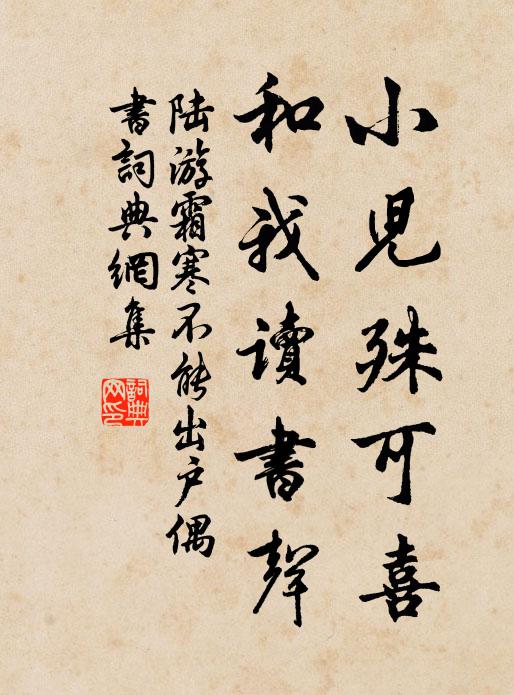 小児殊可喜
和我讀書聲
陆游霜寒不能出户偶
書詞典網集
詞典
网印